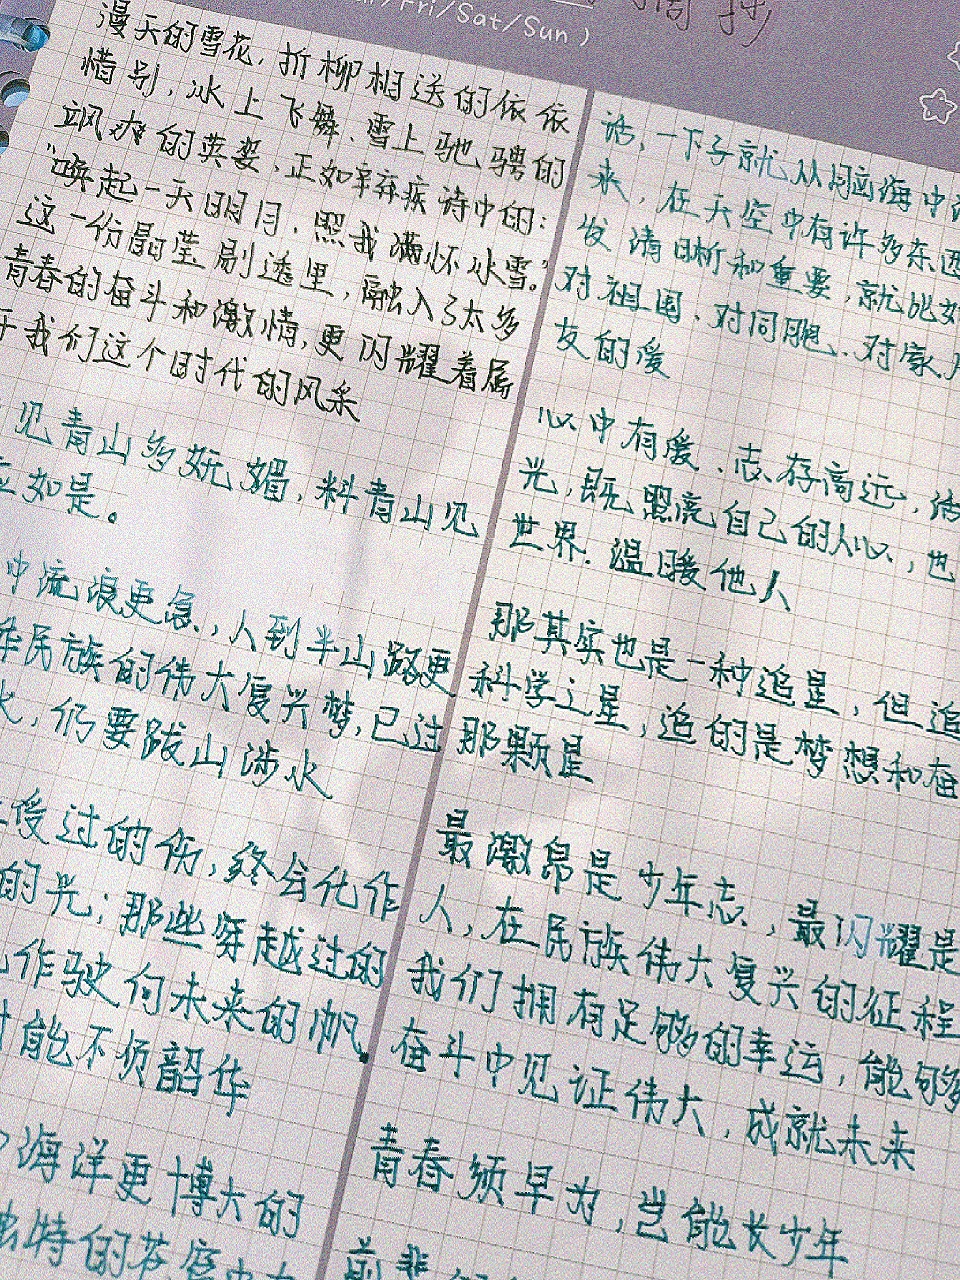 /Fri/Sat/Sun)
周摘
漫天的雪花,折柳相送的依依
惜别,冰上飞舞、雪上驰骋的
飒爽的英姿,正如辛弃疾诗中的:
"唤起一天明月,照我满怀冰雪。"
这一份晶莹剔透里,融入了太多
青春的奋斗和激情,更闪耀着属
于我们这个时代的风采
见青山多妩媚,料青山见
应如是。
中流浪更急,人到半山路更
民族的伟大复兴梦,已过
水,仍要跋山涉水
受过的伤,终会化作
的光;那些穿越过的
作驶向未来的帆
能不负韶华
海洋更博大的
独特的苍穹中
话,一下子就从脑海中
来,在天空中有许多东西
发清晰和重要,就比如
对祖国、对同胞、对家
友的爱
心中有爱、志存高远,活
光,既照亮自己的人心,也
世界、温暖他人
那其实也是一种追星,但追
科学之星,追的是梦想和奋
那颗星
最激昂是少年志,最闪耀是
人,在民族伟大复兴的征程
我们拥有足够的幸运,能够
奋斗中见证伟大,成就未来
青春须早为,岂能长少年
前辈